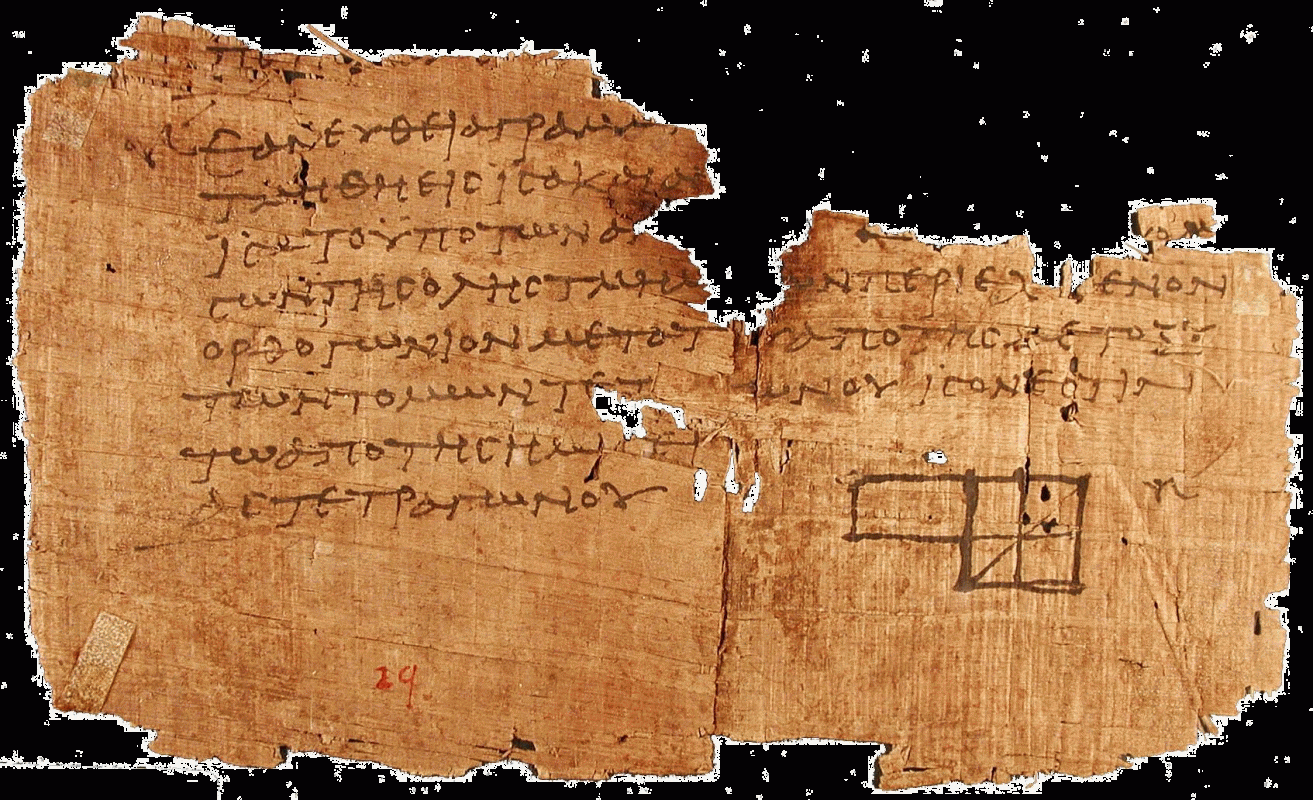 ΕΑΝΕΥΘΕΙΑΓΡΑΜΜ
ΤΜΗΘΗΕΙϹΙϹΑΚΑΙΑ
ΙϹΑΤΟΥΠΟΤΩΝΑΝ
ϹΩΝΤΗϹΟΛΗϹΤΜΗΜ ΩΝΠΕΡΙΕΧ ΜΕΝΟΝ
ΟΡΘΟΓΩΝΙΟΝΜΕΤΟΤ ΑΠΟΤΗϹΜΕΤΟΞΥ
ΤΩΝΤΟΜΩΝΤΕΤ ΩΝΟΥ ΙϹΟΝΕϹΤΙΝ
ΤΩΑΠΟΤΗϹΗΜΙϹΕΙ
ΑϹΤΕΤΡΑΓΩΝΟΥ
29